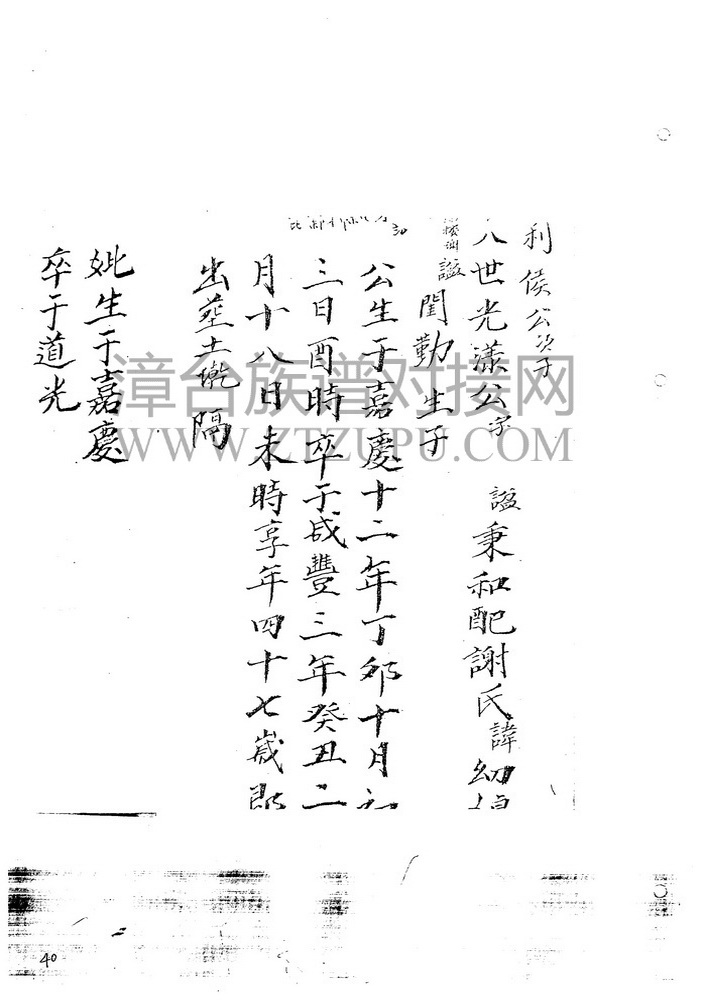 利侯公次子
八世光漾公字 諡秉和配謝氏諱幼
諡閨勤生子
公生于嘉慶十二年丁卯十月初
三日酉時卒于咸豐三年癸丑二
月十八日未時享年四十七歲
出塟土 隔
妣生于嘉慶
卒于道光
30
漳台族谱对接网
WWW.ZTZUPU.COM
40